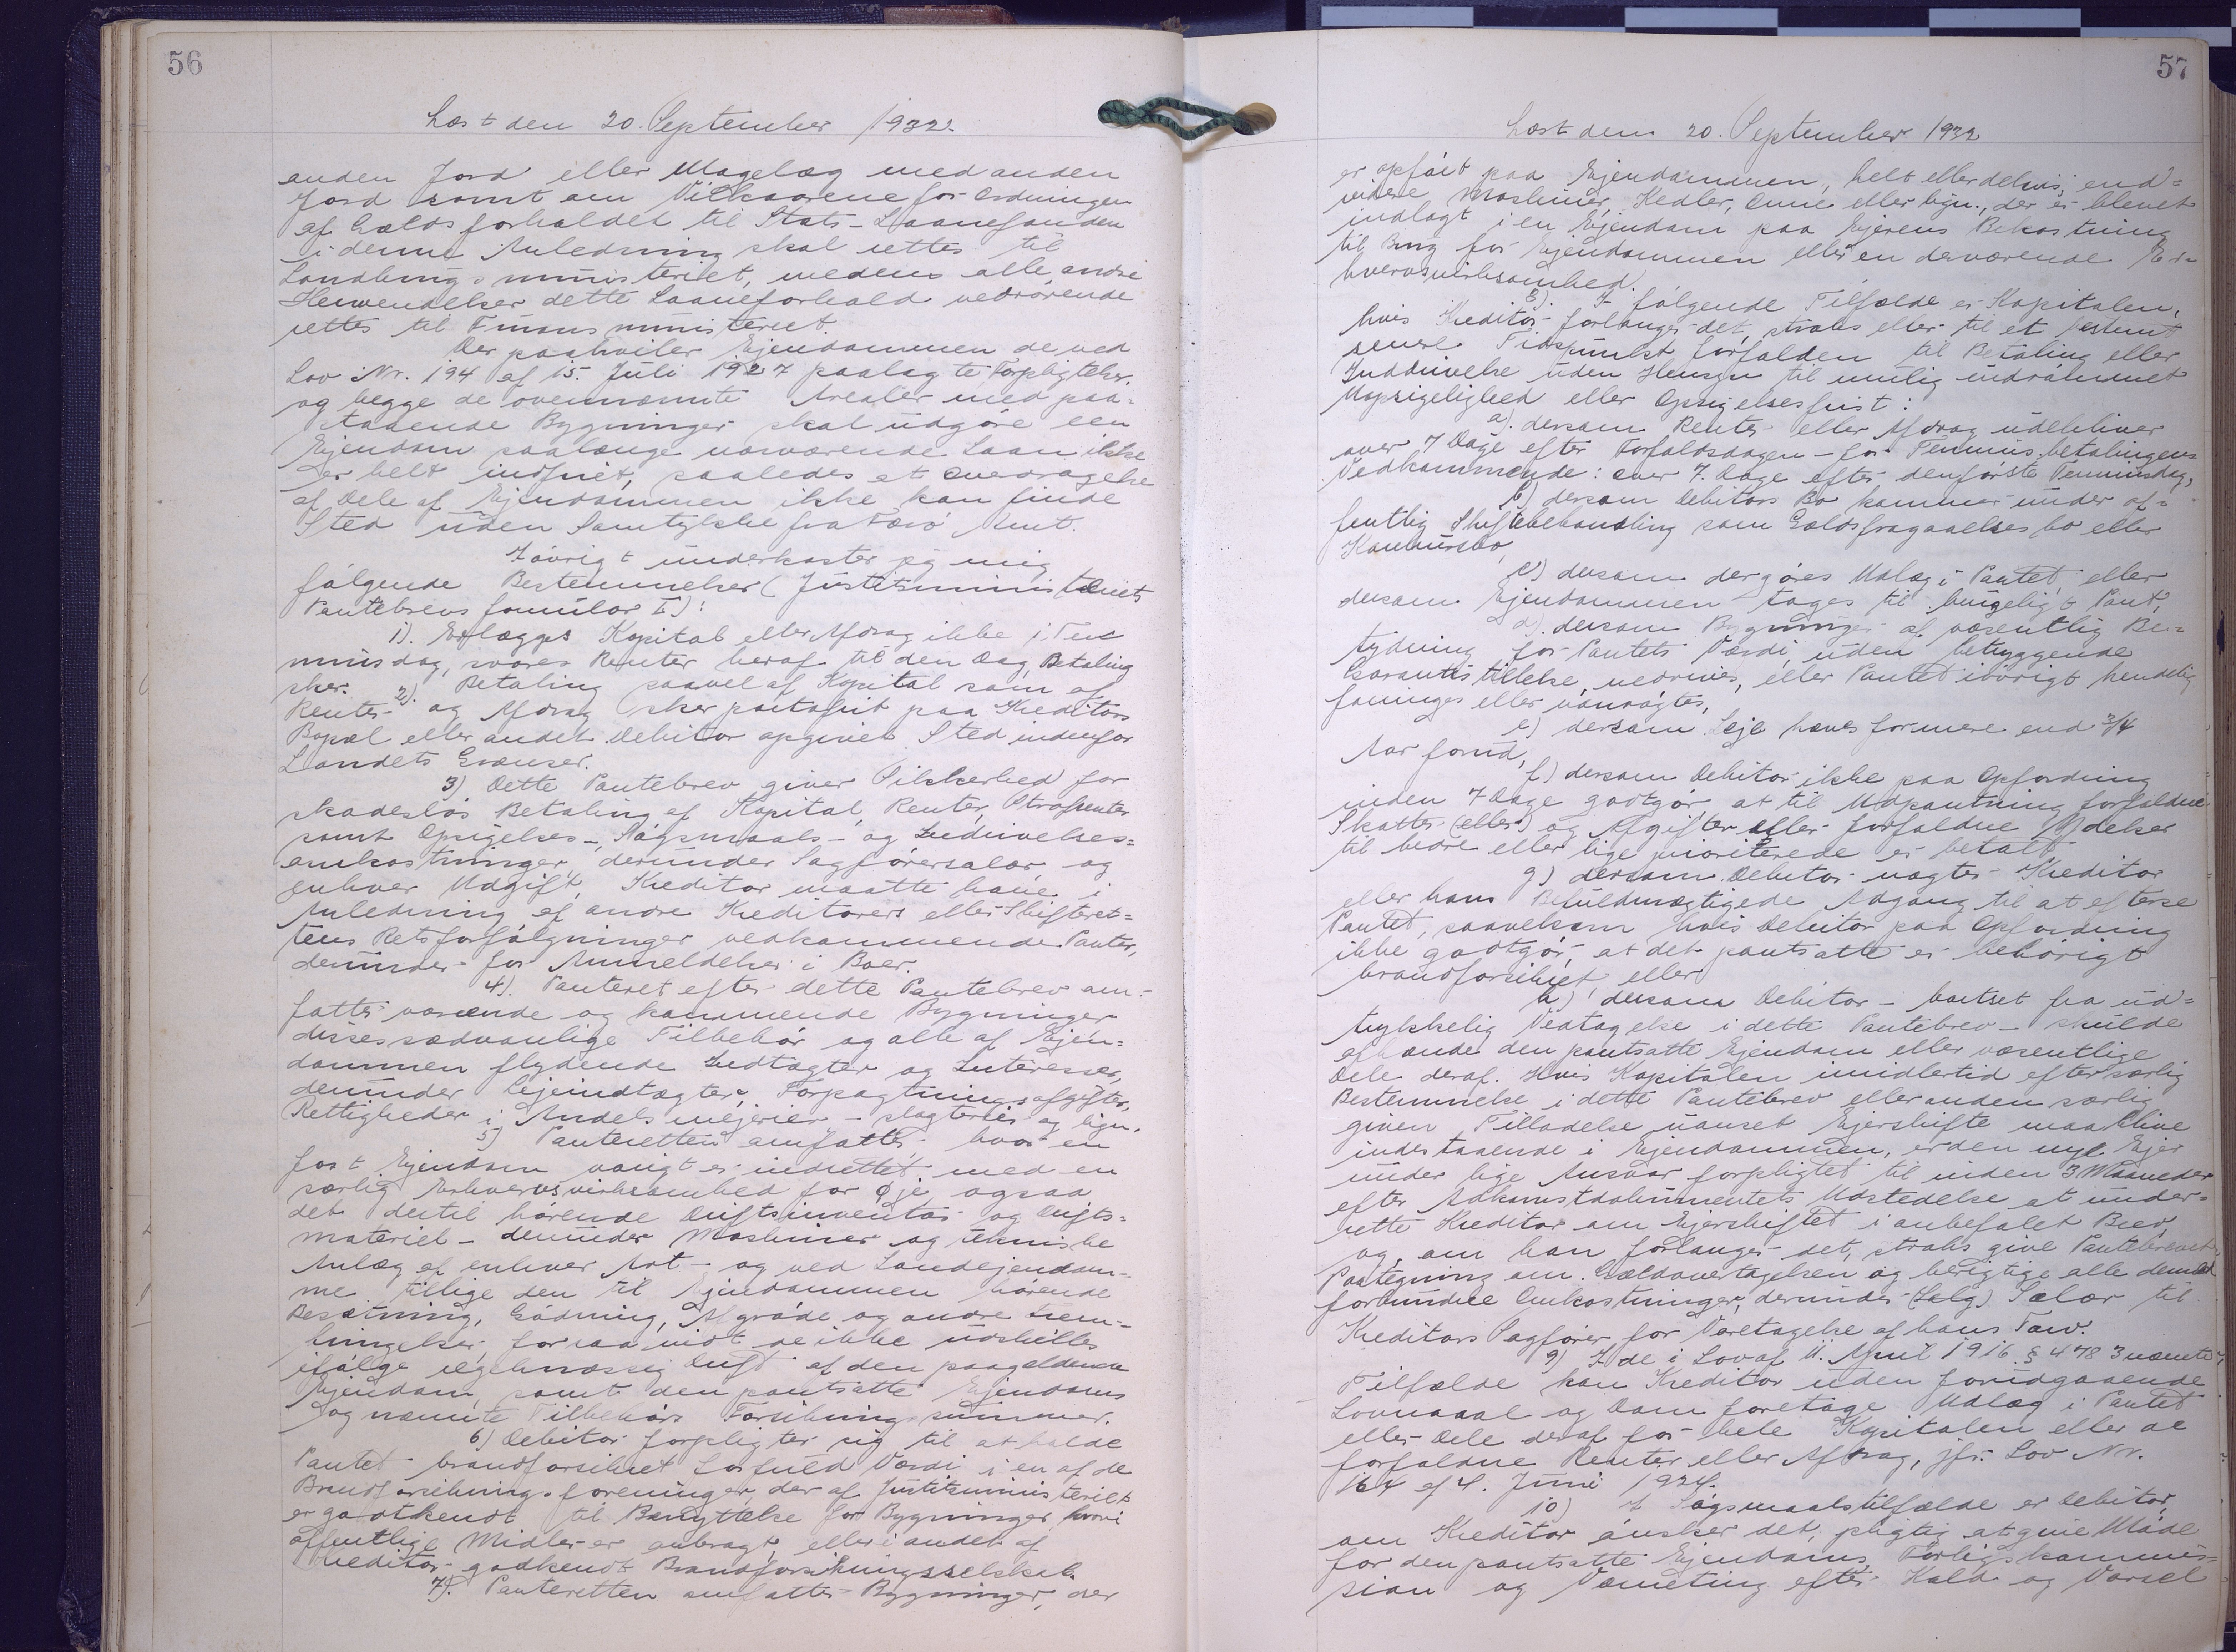 56
Læst den 20. September 1932.
anden Jord eller Magelæg med anden
Jord samt om Vilkaarene for Ordningen
af Gældsforholdet til Stats-Laanefonden
i denne Anledning skal rettes til
Landbrugsministeriet, medens alle andre
Henvendelser dette Laaneforhold vedrørende
rettes til Finansministeriet.
Der paahviler Ejendommen de ved
Lov Nr. 194 af 15. Juli 1927 paalagte Forpligtelser,
og begge de ovennævnte Arealer med paa-
staaende Bygninger skal udgøre een
Ejendom saalænge nærværende Laan ikke
er helt indfriet, saaledes at Overdragelse
af Dele af Ejendommen ikke kan finde
Sted uden Samtykke fra Færø Amt.
Iøvrigt underkaster jeg mig
følgende Bestemmelser (Justitsministeriets
Pantebrevsformular I):
1). Erlægges Kapital eller Afdrag ikke i Ter
minsdag, svares Renter heraf til den Dag, Betaling
sker. 2). Betaling saavel af Kapital som af
Renter og Afdrag sker portofrit paa Kreditors
Bopæl eller andet Debitor opgivet Sted indenfor
Landets Grænser.
3) Dette Pantebrev giver Sikkerhed for
skadesløs Betaling af Kapital, Renter, Strafrenter
samt Opsigelses-, Søgsmaals- og Inddrivelses=
omkostninger, derunder Sagførersalær og
enhver Udgift, Kreditor maatte have i
Anledning af andre Kreditorers eller Skifteret=
tens Retsforfølgninger vedkommende Pantet,
derunder for Anmeldelser i Boer.
4). Panteret efter dette Pantebrev om-
fatter værende og kommende Bygninger
disses sædvanlige Tilbehør og alle af Ejen=
dommen flydende Indtægter og Interesser,
derunder Lejeindtægter, Forpagtningsafgifter,
Rettigheder i Andelsmejerier - slagterier og lign.
5) Panteretten omfatter, hvor en
fast Ejendom varigt er indrettet med en
særlig Erhvervsvirksomhed for Øje, ogsaa
det dertil hørende Driftsinventar og Drifts=
materiel - derunder Maskiner og tekniske
Anlæg af enhver Art - og ved Landejendom-
me tillige den til Ejendommen hørende
Besætning, Gødning, Afgrøde og andre Frem-
bringelser, forsaavidt de ikke udskilles
ifølge regelmæssig Drift af den paagældende
Ejendom, samt den pantsatte Ejendoms
og nævnte Tilbehørs Forsikringssummer.
6) Debitor forpligter sig til at holde
Pantet brandforsikret for fuld Værdi i en af de
Brandforsikringsforeninger, der af Justitsministeriet
er godkendt til Benyttelse for Bygninger, hvori
offentlige Midler er anbragt, eller i andet af
Kreditor godkendt Brandforsikringsselskab.
7). Panteretten omfatter Bygninger, der
57
Læst den 20. September 1932
er opført paa Ejendommen, helt eller delvis, end=
videre Maskiner, Kedler, Ovne eller lign., der er blevet
indlagt i en Ejendom paa Ejerens Bekostning
til Brug for Ejendommen eller en derværende Er-
hvervsvirksomhed.
8). I følgende Tilfælde er Kapitalen,
hvis Kreditor forlanger det, straks eller til et bestemt
senere Tidspunkt forfalden til Betaling eller
Inddrivelse uden Hensyn til mulig indrømmet
Uopsigelighed eller Opsigelsesfrist:
a). dersom Renter eller Afdrag udebliver
over 7 Dage efter Forfaldsdagen - for Terminsbetalingens
Vedkommende: over 7. Dage efter den første Terminsdag,
b) dersom Debitors Bo kommer under of=
fentlig Skiftebehandling som Gældsfragaaelsesbo eller
Konkursbo,
c) dersom der gøres Udlæg i Pantet eller
dersom Ejendommen tages til brugeligt Pant,
d). dersom Bygninger af væsentlig Be-
tydning for Pantets Værdi, uden betryggende
Garantistillelse, nedrives, eller Pantet iøvrigt kendelig
forringes eller vanrøgtes,
e) dersom Leje hæves for mere end 3/4
Aar forud,
f) dersom Debitor ikke paa Opfordring
inden 7 Dage godtgør, at til Udpantning forfaldne
Skatter (eller) og Afgifter eller forfaldne Ydelser
til bedre eller lige prioriterede er betalt
g) dersom Debitor nægter Kreditor
eller hans Befuldmægtigede Adgang til at efterse
Pantet, saavelsom hvis Debitor paa Opfordring
ikke godtgør, at det pantsatte er behørigt
brandforsikret, eller
h) dersom Debitor - bortset fra ud=
trykkelig Vedtagelse i dette Pantebrev - skulde
afhænde den pantsatte Ejendom eller væsentlige
Dele deraf. Hvis Kapitalen imidlertid efter særlig
Bestemmelse i dette Pantebrev eller anden særlig
given Tilladelse uanset Ejerskifte maa blive
indestaaende i Ejendommen, er den nye Ejer
under lige Ansvar forpligtet til inden 3 Maaneder
efter Adkomstdokumentets Udstedelse at under=
rette Kreditor om Ejerskiftet i anbefalet Brev
og, om han forlanger det, straks give Pantebrevet
Paategning om Gældsovertagelsen og berigtige alle dermed
forbundne Omkostninger, derunder (Salg) Salær til
Kreditors Sagfører for Varetagelse af hans Tarv.
9) I de i Lov af 11. April 1916 § 478 3 nævnte
Tilfælde kan Kreditor uden forudgaaende
Lovmaal og Dom foretage Udlæg i Pantet
eller Dele deraf for hele Kapitalen eller de
forfaldne Renter eller Afdrag, jfr. Lov Nr.
164 af 4. Juni 1924.
10) I Søgsmaalstilfælde er Debitor,
om Kreditor ønsker det, pligtig at give Møde
for den pantsatte Ejendoms Forligskommis=
sion og Værneting efter Kald og Varsel